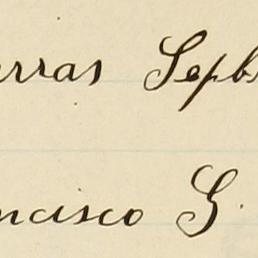 erras Sepb
ncisco S.